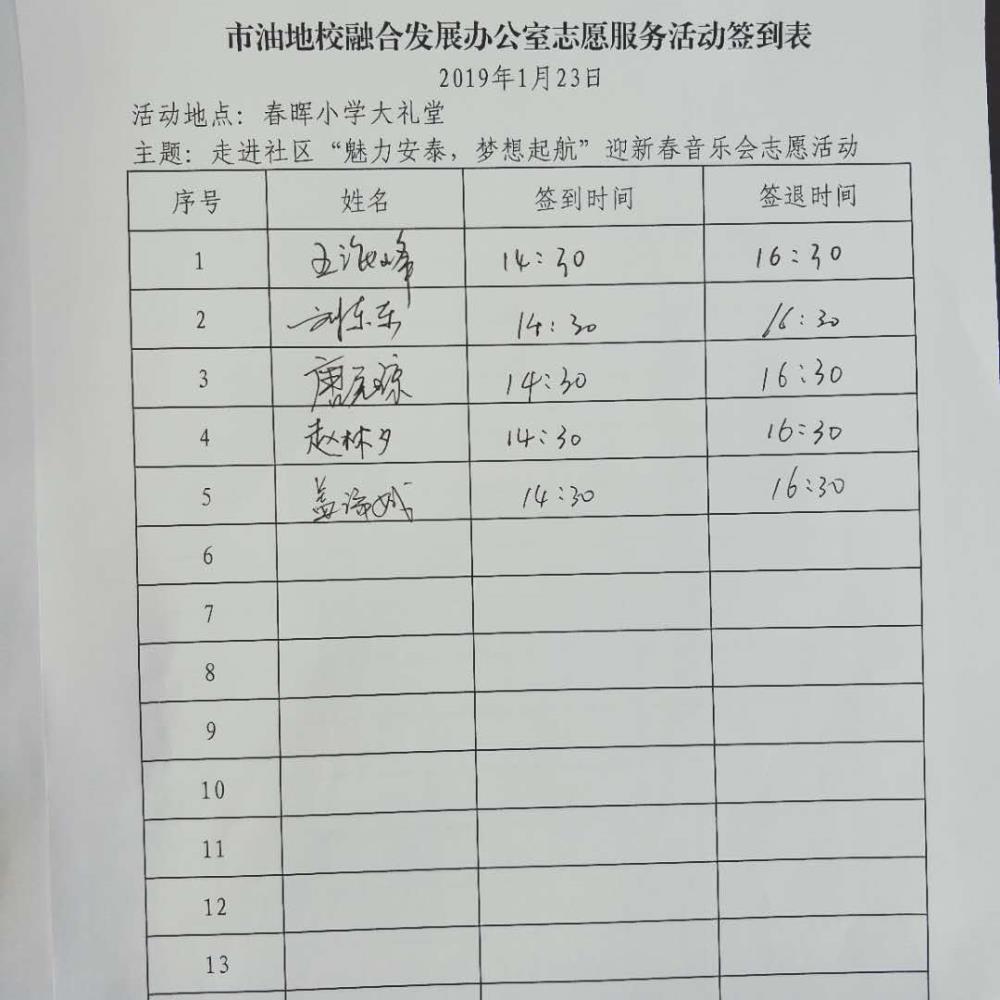 市油地校融合发展办公室志愿服务活动签到表
2019年1月23日
活动地点：春晖小学大礼堂
主题：走进社区“魅力安泰，梦想起航”迎新春音乐会志愿活动
序号 姓名 签到时间 签退时间
1 王 峰 14:30 16:30
2 刘东东 14:30 16:30
3 唐 琼 14:30 16:30
4 赵林夕 14:30 16:30
5 14:30 16:30
6
7
8
9
10
11
12
13